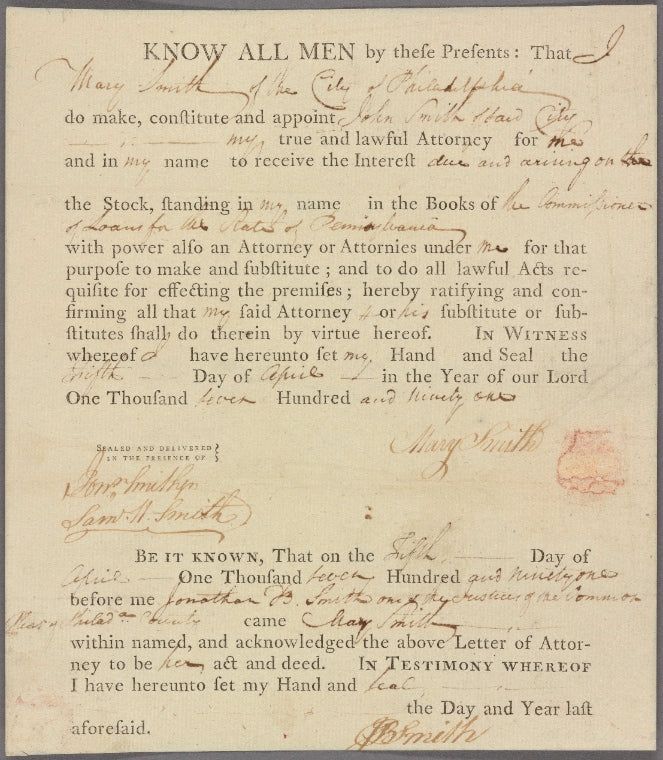 KNOW ALL MEN by theſe Preſents: That I
Mary Smith of the City of Philadelphia
do make, conſtitute and appoint John Smith of said City
my true and lawful Attorney for me
and in my name to receive the Intereſt due and arising on the
the Stock, ſtanding in my name in the Books of the Commissioner
of Loans for the State of Pennsylvania
with power alſo an Attorney or Attornies under me for that
purpoſe to make and ſubſtitute; and to do all lawful Acts re-
quiſite for effecting the premiſes; hereby ratifying and con-
firming all that my ſaid Attorney or his ſubſtitute or ſub-
ſtitutes ſhall do therein by virtue hereof. IN WITNESS
whereof I have hereunto ſet my Hand and Seal the
Fifth Day of April in the Year of our Lord
One Thouſand ſeven Hundred and Ninety one
SEALED AND DELIVERED
IN THE PRESENCE OF
Mary Smith
Saml. W. Smith
BE IT KNOWN, That on the Fifth Day of
April One Thouſand ſeven Hundred and Ninety one
before me Jonathan B. Smith one of the Justices of the Common
Pleas of Philada. County came Mary Smith
within named, and acknowledged the above Letter of Attor-
ney to be her act and deed. IN TESTIMONY WHEREOF
I have hereunto ſet my Hand and ſeal
the Day and Year laſt
aforeſaid. JBSmith